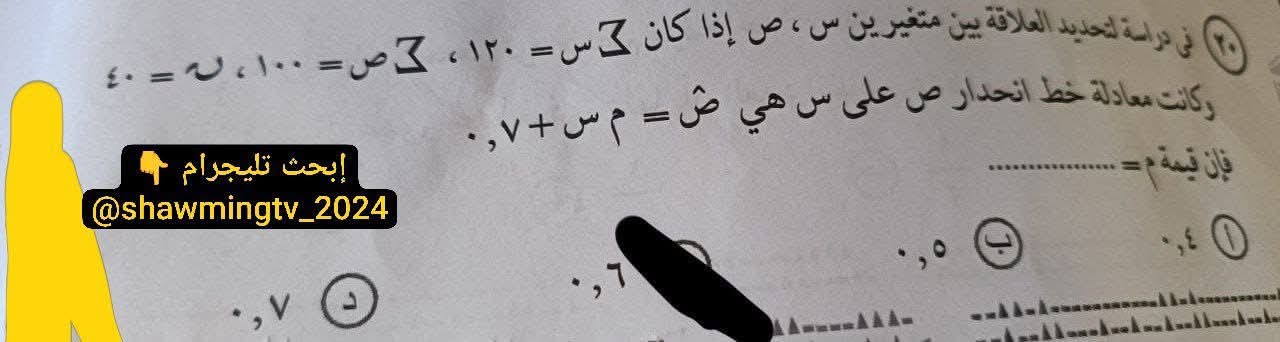 ٢٠ في دراسة لتحديد العلاقة بين متغيرين س ، ص إذا كان ∑ س = ١٢٠ ، ∑ ص = ١٠٠ ، ن = ٤٠
وكانت معادلة خط انحدار ص على س هي صَّ = م س + ٠,٧
فإن قيمة م = .................
أ ٠,٤
ب ٠,٥
٠,٦
د ٠,٧
إبحث تليجرام 👇
@shawmingtv_2024